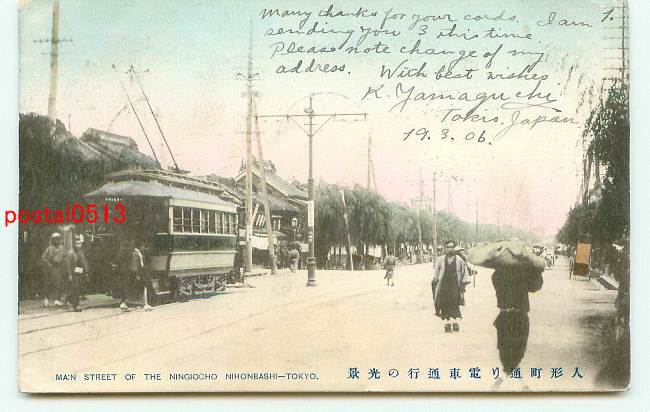 Many thanks for your cards. I am 1.
sending you 3 this time.
Please note change of my
address. With best wishes
K. Yamaguchi
Tokio, Japan
19. 3. 06.
postal0513
MAIN STREET OF THE NINGIOCHO NIHONBASHI—TOKYO.
景光の行通車電り通町形人